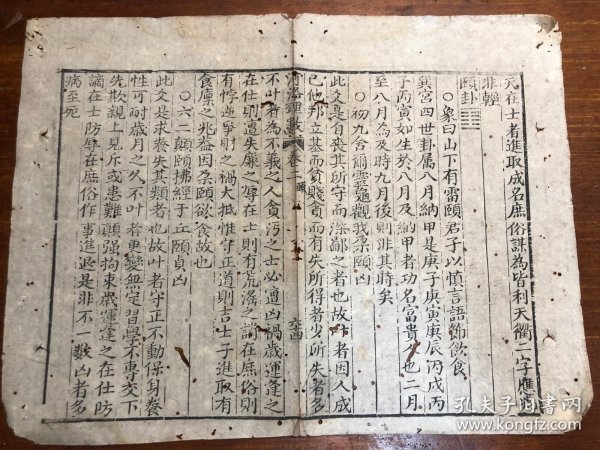 元在士者進取成名庶俗謀為皆利天衢二字應
非輕
頤卦
○象曰山下有雷頤君子以慎言語節飲食
巽宮四世卦屬八月納甲是庚子庚寅庚辰丙戌丙
子丙寅如生於八月及納甲者功名富貴人也二月
至八月為及時九月後則非其時矣
○初九舍爾靈龜觀我朵頤凶
此爻是自喪其所守而深鄙之者也故叶者因人成
己他邦立基而貧賤責而有失所得者少所失者多
河洛理數 卷二 頤 六四
不叶者為不義之人貪污之士必遭凶禍歲運逢之
在仕則遭失廉之辱在士則有荒淫之誚在庶俗則
有悖逆爭財之禍大抵惟守正道則吉士子進取有
食廩之兆蓋因朶頤欲食故也
○六二顛頤拂經于丘頤貞凶
此爻是求養失其類者也故叶者守正不動保身養
性可耐歲月之久不叶者更變無定習學不專交下
先欺親上見斥或患難顛强拘束歲運逢之在仕防
謫在士防辱在庶俗作事進退是非不一數凶者多
病至死
孔夫子旧书网
www.kongfz.com